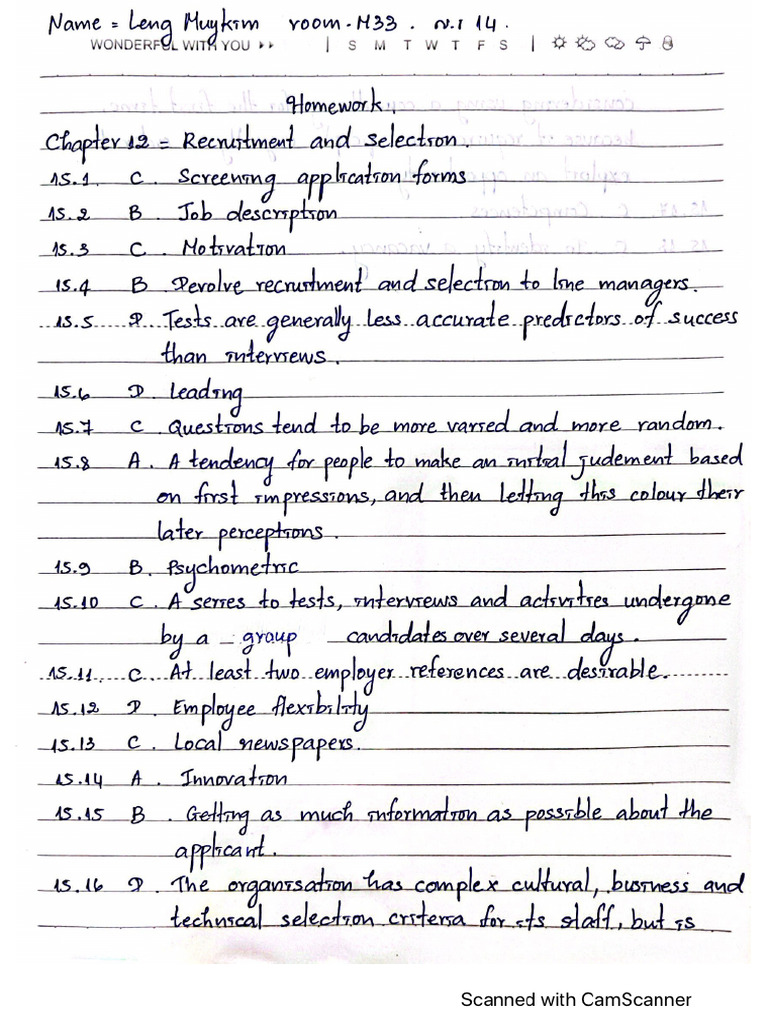 Name = Leng Muykim room - H33 . N.i 14 .
WONDERFUL WITH YOU ▸▸ | S M T W T F S |
Homework.
Chapter 12 = Recruitment and selection.
15.1 C. Screening application forms
15.2 B. Job description
15.3 C. Motivation
15.4 B Devolve recruitment and selection to line managers.
15.5 D. Tests are generally less accurate predictors of success
than interviews.
15.6 D. Leading
15.7 C. Questions tend to be more varied and more random.
15.8 A. A tendency for people to make an initial judement based
on first impressions, and then letting this colour their
later perceptions.
15.9 B. Psychometric
15.10 C. A series to tests, interviews and activities undergone
by a group candidates over several days.
15.11. C. At least two employer references are desirable.
15.12 D. Employee flexibility
15.13 C. Local newspapers.
15.14 A. Innovation
15.15 B. Getting as much information as possible about the
applicant.
15.16 D. The organisation has complex cultural, business and
technical selection criteria for its staff, but is
Scanned with CamScanner